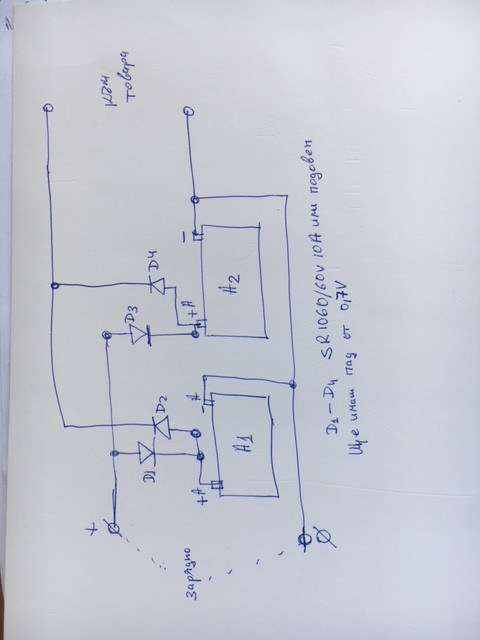 Към
товара
D4
D3
D2
D1
+A
A2
−
+A
A1
A
−
+
зарядно
D1 – D4 SR1060/60V 10A или подобен
Ще имаш пад от 0,7V